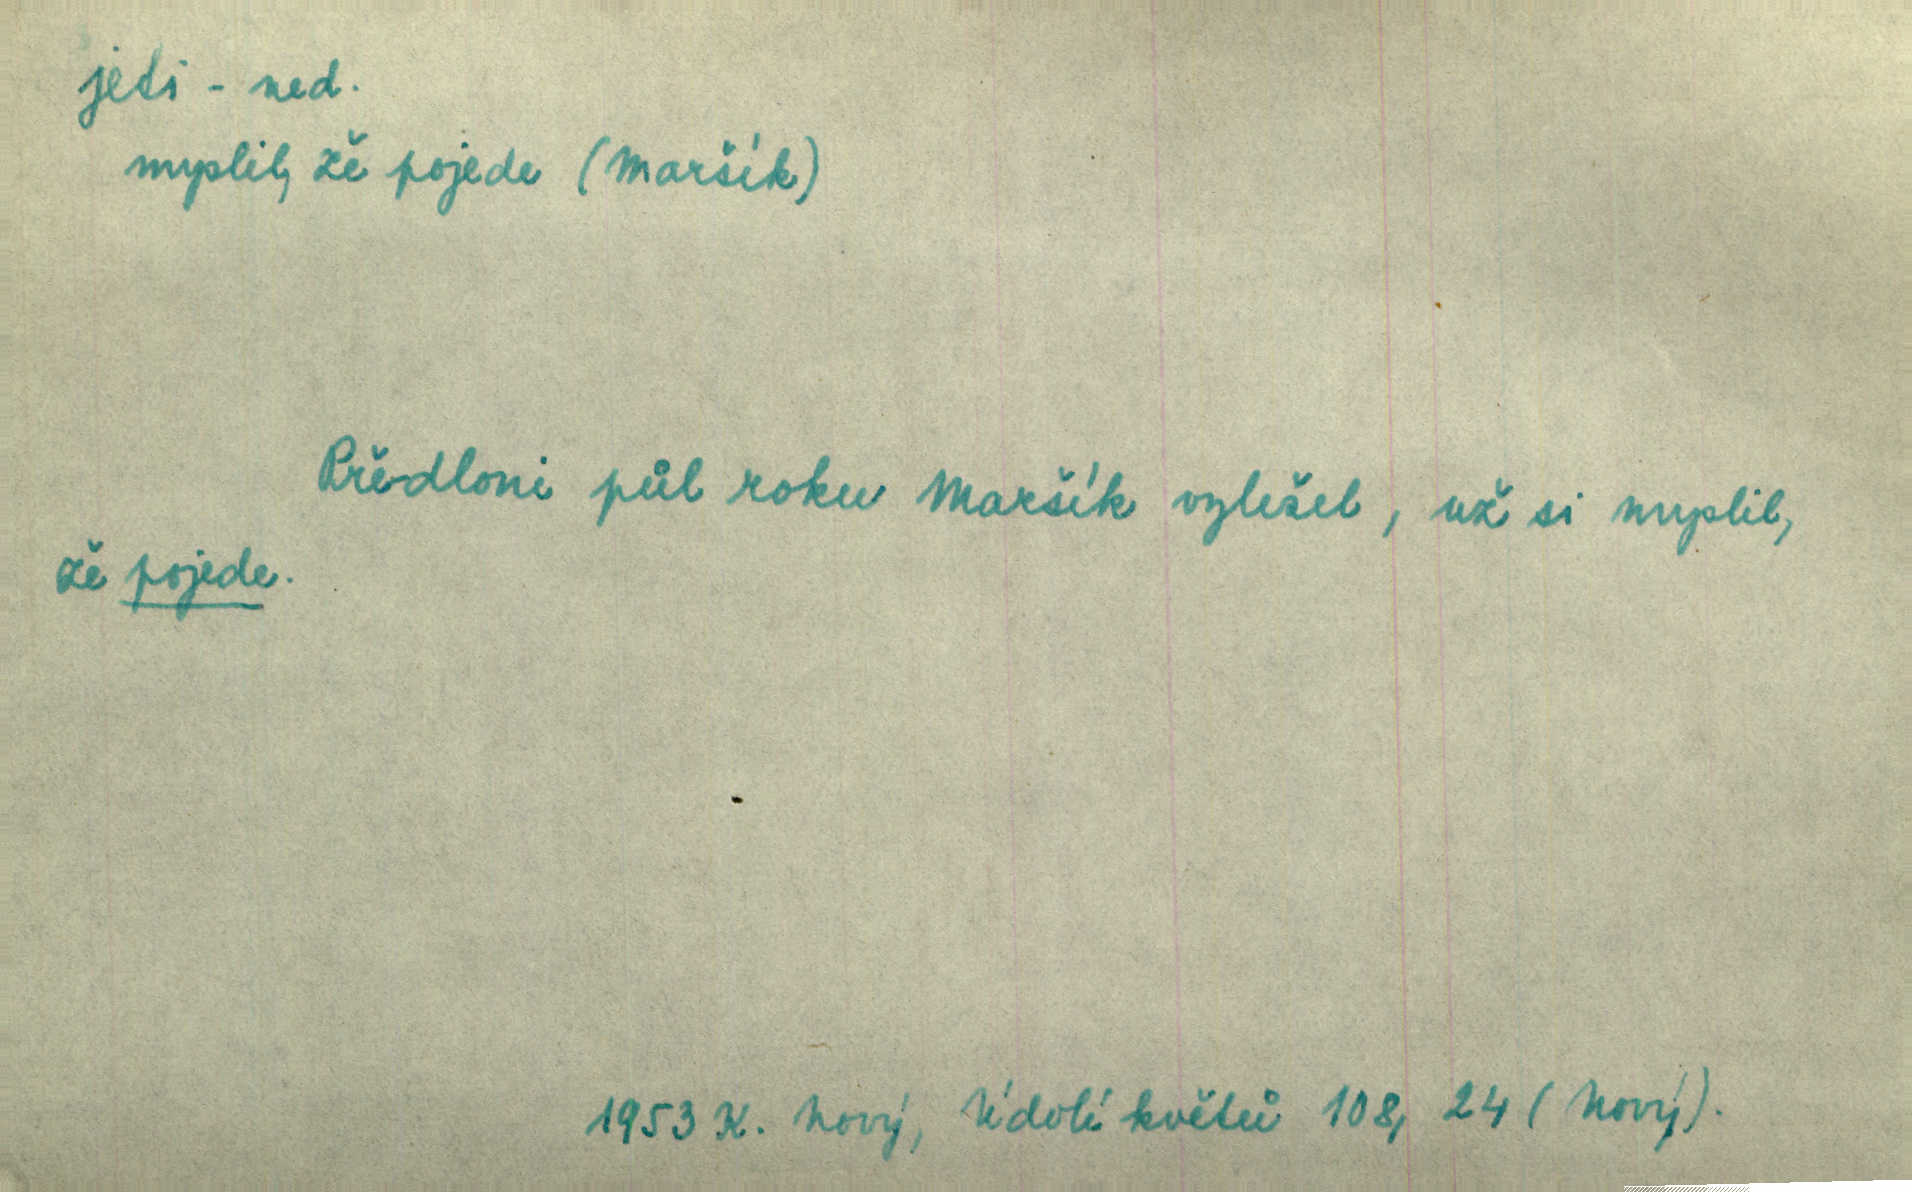 jeti - ned.
myslil, že pojede (Maršík)
Předloni půl roku Maršík vyležel, už si myslil,
že pojede.
1953 K. Nový, Údolí květů 108, 24 (Nový).